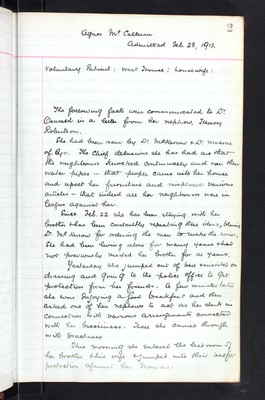 2
Agnes McCallum
Admitted Feb. 28, 1912.
Voluntary Patient: West House: housewife:
The following facts were communicated to Dr.
in a letter from her nephew, Henry
Robertson.
She had been seen by Dr. McKerrow & Dr.
of Ayr. The Chief delusions she has had are that
the neighbours knocked continually and ran their
water pipes – that people came into her house
and upset her furniture and misplaced various
articles – that indeed all her neighbours were in
league against her.
Since Feb. 22 she has been staying with her
brother & has been constantly repeating these ideas, blames
Dr McKerrow for ordering the men to her house.
She had been living alone for many years & had
not previously visited her brother for 20 years.
Yesterday she jumped out of bed insisted on
dressing and going to the police office to get
protection from her friends. A few minutes later
she was enjoying a good breakfast and then
asked one of her nephews to act as her clerk in
connection with various arrangements connected
with her business. These she carried through
with exactness.
This morning she entered the bedroom of
her brother & his wife & jumped into their bed for
protection against her enemies.